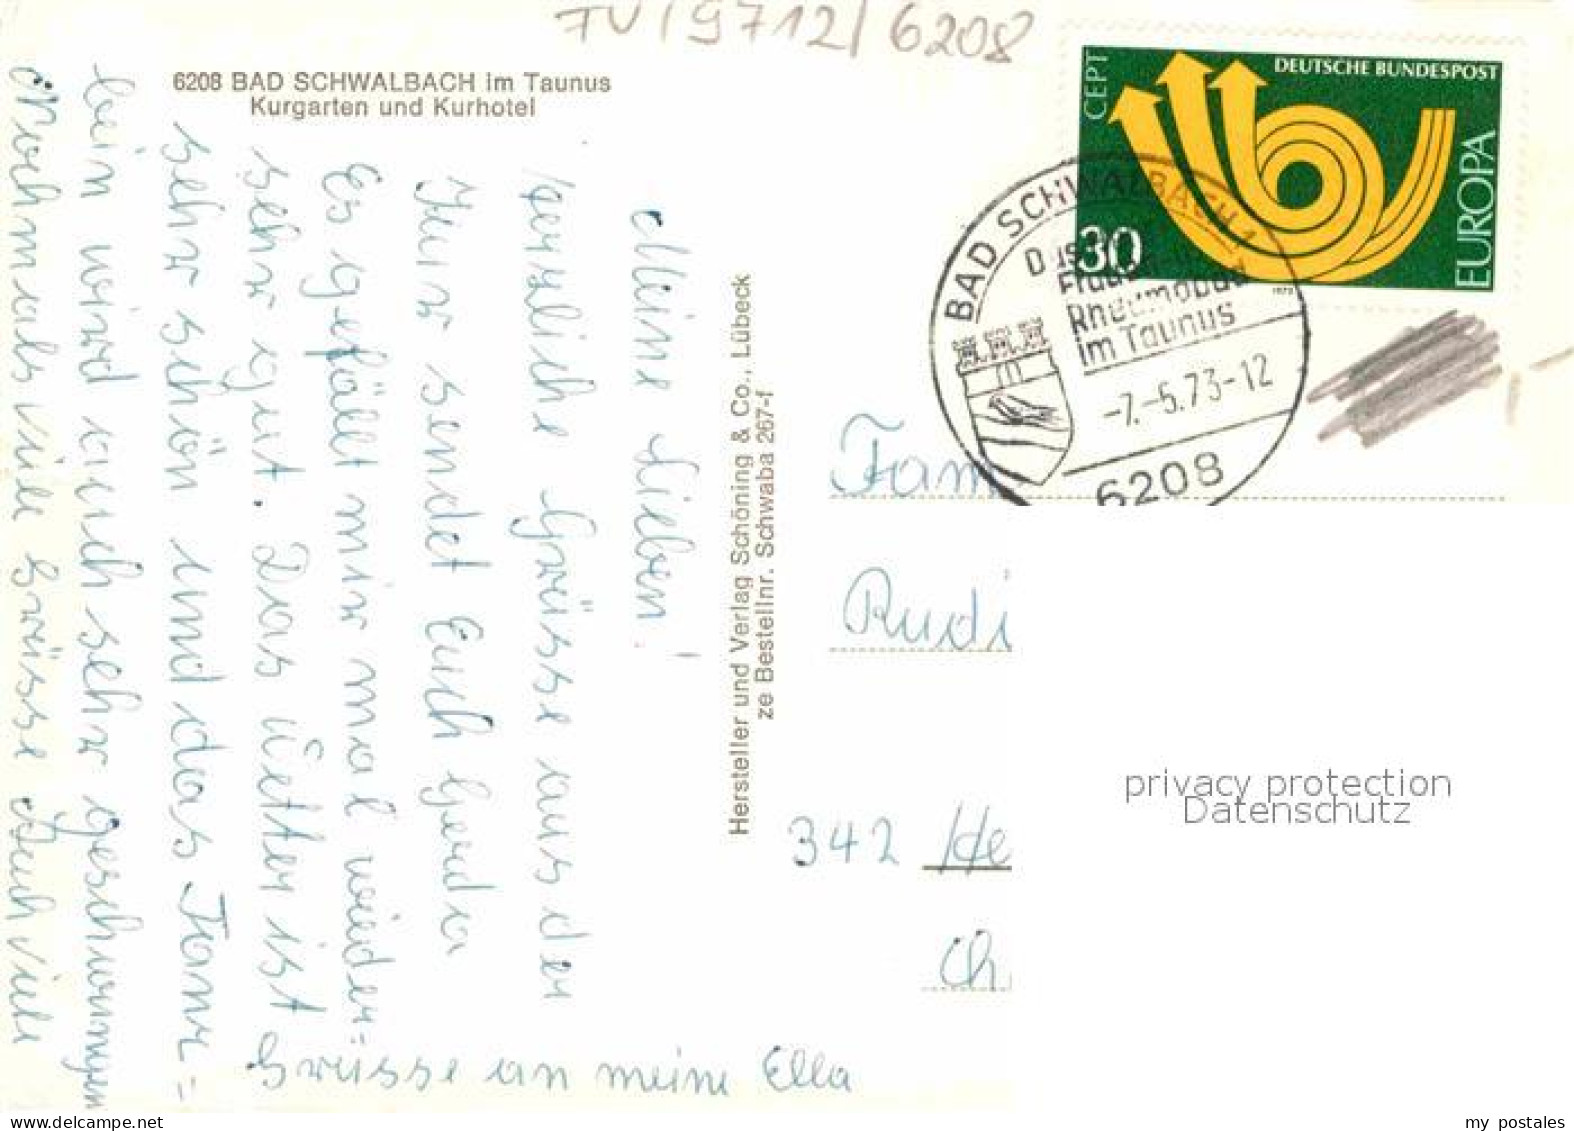 TV/9712/6208
6208 BAD SCHWALBACH im Taunus
Kurgarten und Kurhotel
Meine Lieben!
herzliche Grüsse aus der
Kur sendet Euch Gerda
Es gefällt mir mal wieder
sehr gut. Das Wetter ist
sehr schön und das Tanz=
bein wird auch sehr geschwungen
Nochmals viele Grüsse Euch viele
Grüsse an meine Ella
Hersteller und Verlag Schöning & Co., Lübeck
ze Bestellnr. Schwaba 267-f
CEPT
DEUTSCHE BUNDESPOST
EUROPA
30
BAD SCHWALBACH 1
Das
Rheumabad
im Taunus
-7.-5.73-12
6208
Fam
Rudi
342 He
Ch.
privacy protection
Datenschutz
www.delcampe.net
my_postales